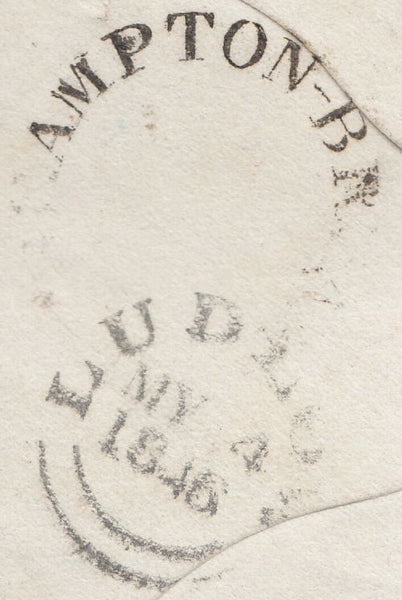 AMPTON-BR
LUDLO
MY 4
1846